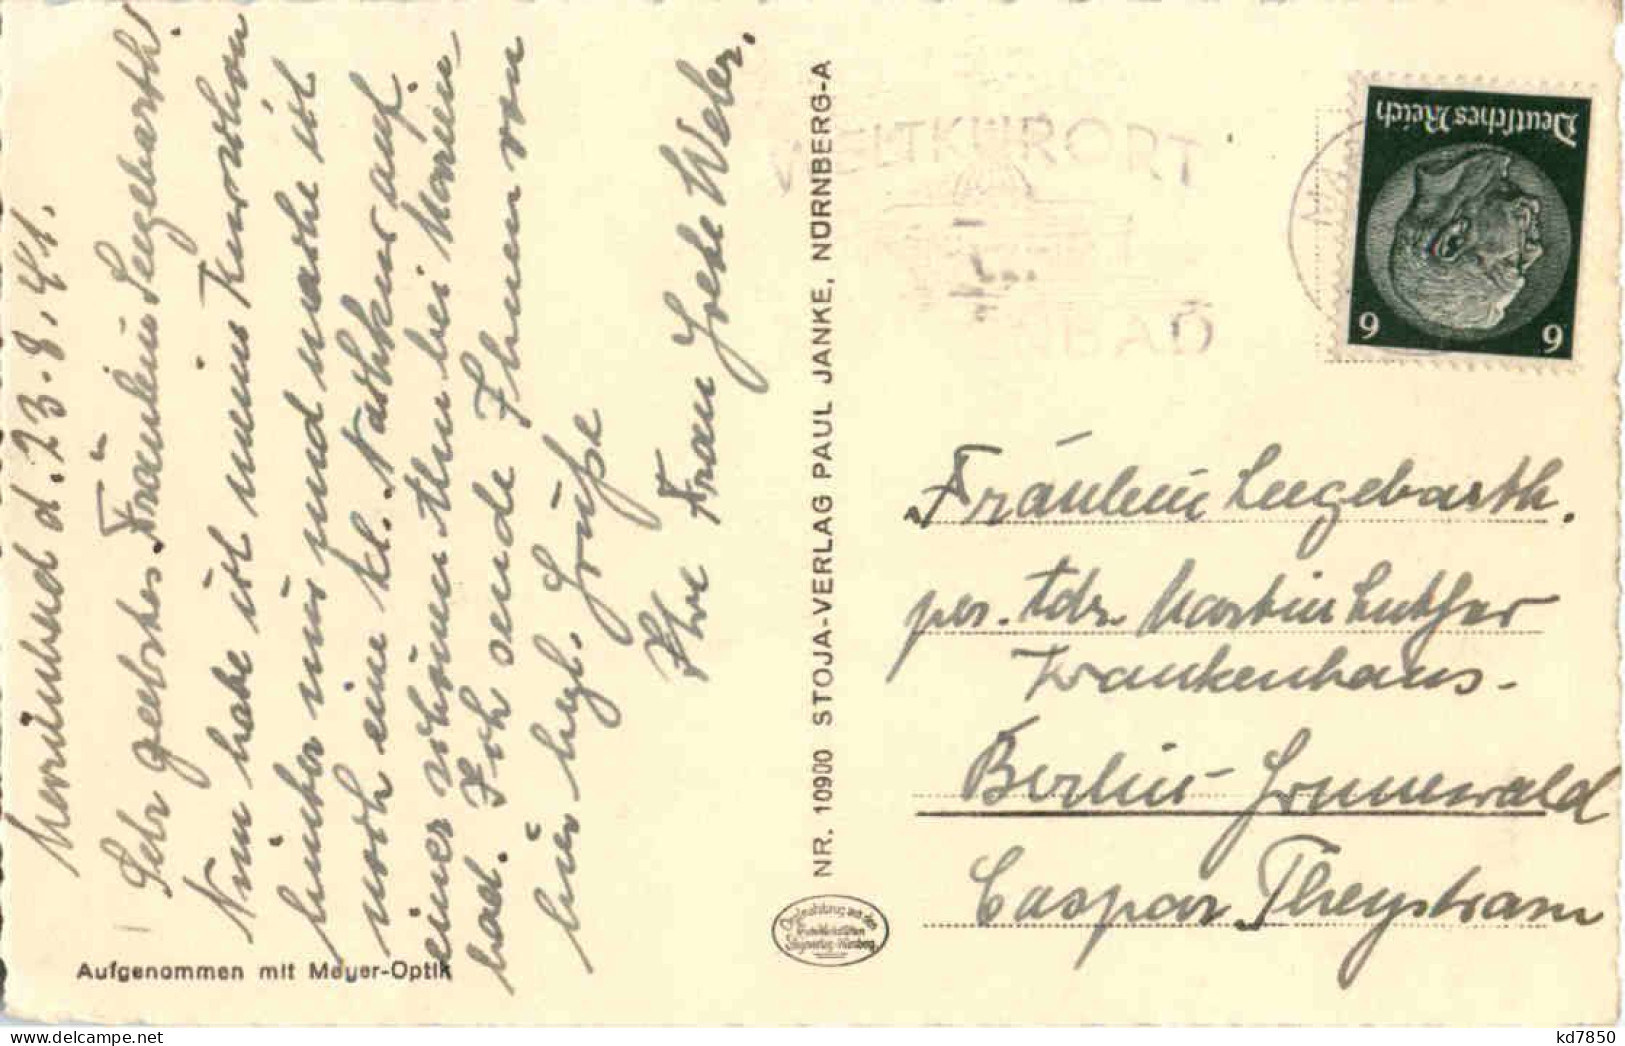 Marienbad d. 23.8.41.
Sehr geehrtes Fräulein Seegebarth!
Nun habe ich meine Kur schon
hinter mir und mache ich
noch eine kl. Nachkur auf
einer schönen Alm bei Marien-
bad. Ich sende Ihnen von
hier hzl. Grüße
Ihre Frau Grete Weber.
Aufgenommen mit Meyer-Optik
NR. 10900 STOJA-VERLAG PAUL JANKE, NÜRNBERG-A
WELTKURORT
BAD
Deutsches Reich
6 6
Fräulein Seegebarth.
per. Adr. Martin Luther
Krankenhaus.
Berlin-Grunewald
Caspar Theystrasse
kd7850